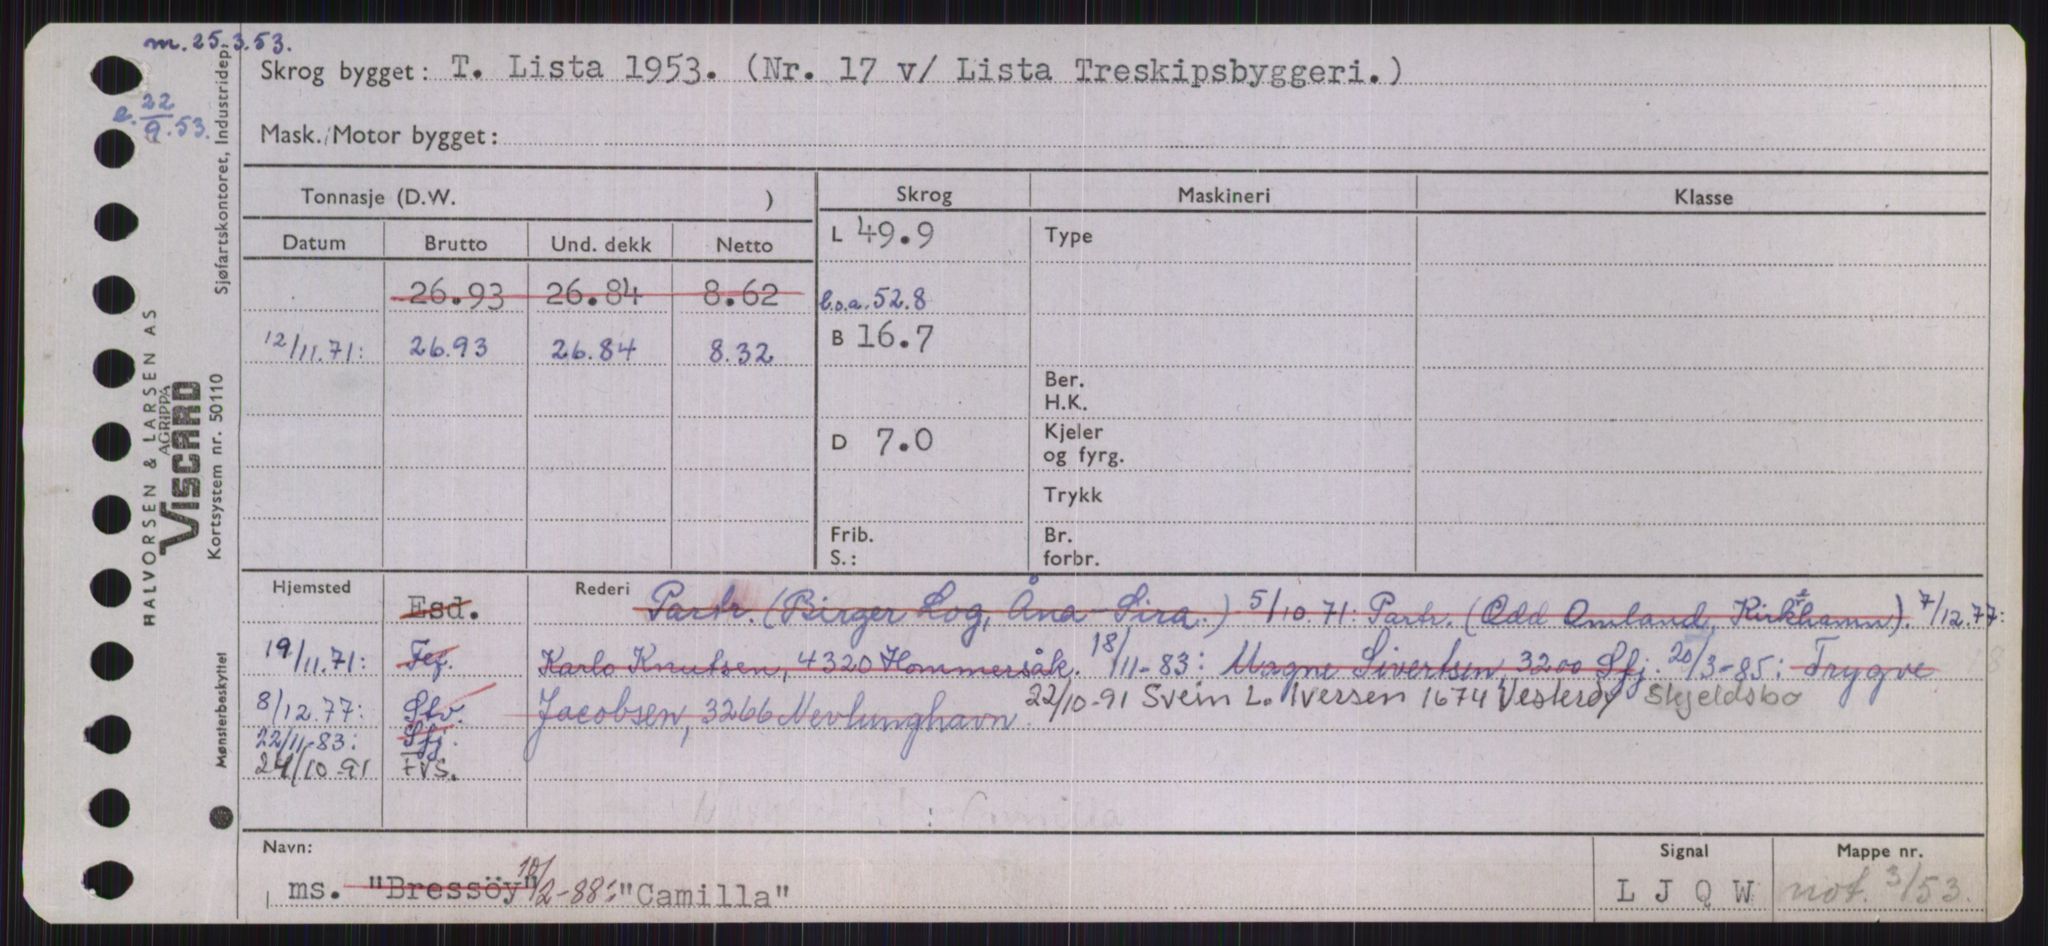 m. 25.3.53.
e. 22/9.53.
Skrog bygget: T. Lista 1953. (Nr. 17 v/ Lista Treskipsbyggeri.)
Mask./Motor bygget:
Tonnasje (D.W. )
Skrog
Maskineri
Klasse
Datum
Brutto
Und. dekk
Netto
L 49.9
Type
26.93 26.84 8.62
b.o.a. 52.8
12/11.71: 26.93 26.84 8.32
B 16.7
Ber.
H.K.
D 7.0
Kjeler
og fyrg.
Trykk
Frib.
S.:
Br.
forbr.
Hjemsted
Rederi
Esd. Partr. (Birger Log, Åna-Sira.) 5/10.71: Partr. (Odd Omland, Kirkhamn). 7/12.77:
19/11.71: Fej. Karlo Knutsen, 4320 Hommersåk. 18/11-83: Magne Sivertsen, 3200 Sfj. 20/3-85: Trygve
8/12.77: Stv. Jacobsen, 3266 Nevlunghavn. 22/10-91 Svein L. Iversen 1674 Vesterøy Skjeldsbo
22/11-83: Sfj.
24/10-91 FVS.
: Camilla
Navn:
ms. "Bressöy" 10/2-88: "Camilla"
Signal
L J Q W
Mappe nr.
not. 3/53.
HALVORSEN & LARSEN AS
AGRIPPA
VISCARD
Sjøfartskontoret, Industridep.
Kortsystem nr. 50110
Mønsterbeskyttet